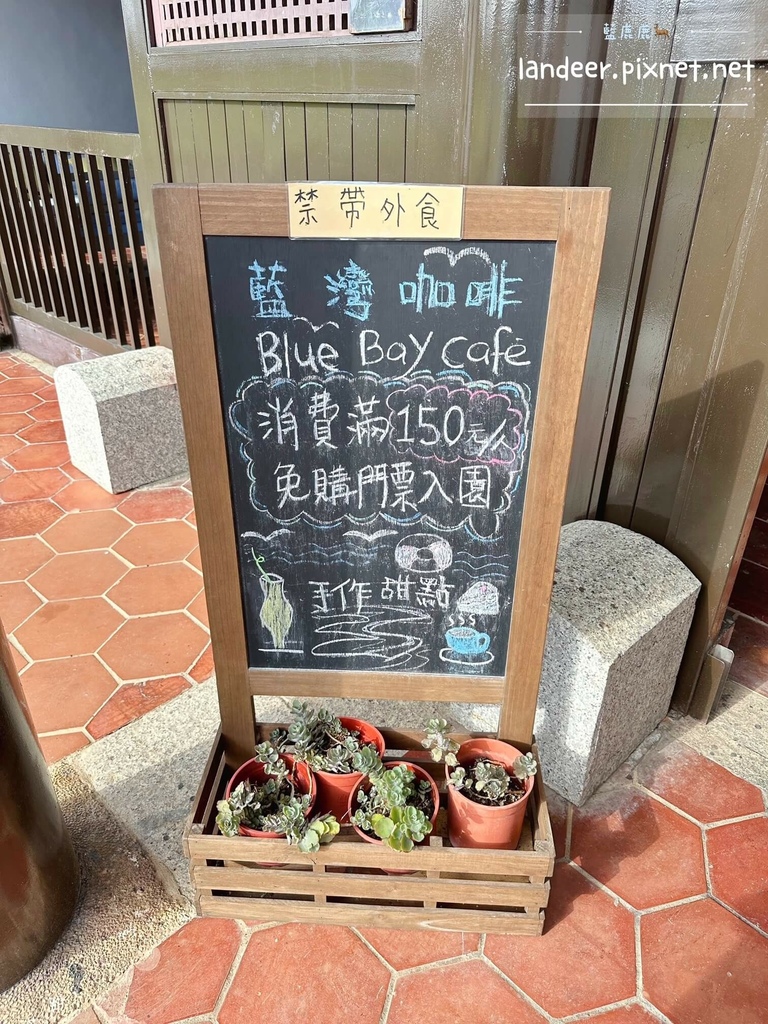 藍鹿鹿
landeer.pixnet.net
禁帶外食
藍灣咖啡
Blue Bay Café
消費滿150元/人
免購門票入園
手作甜點